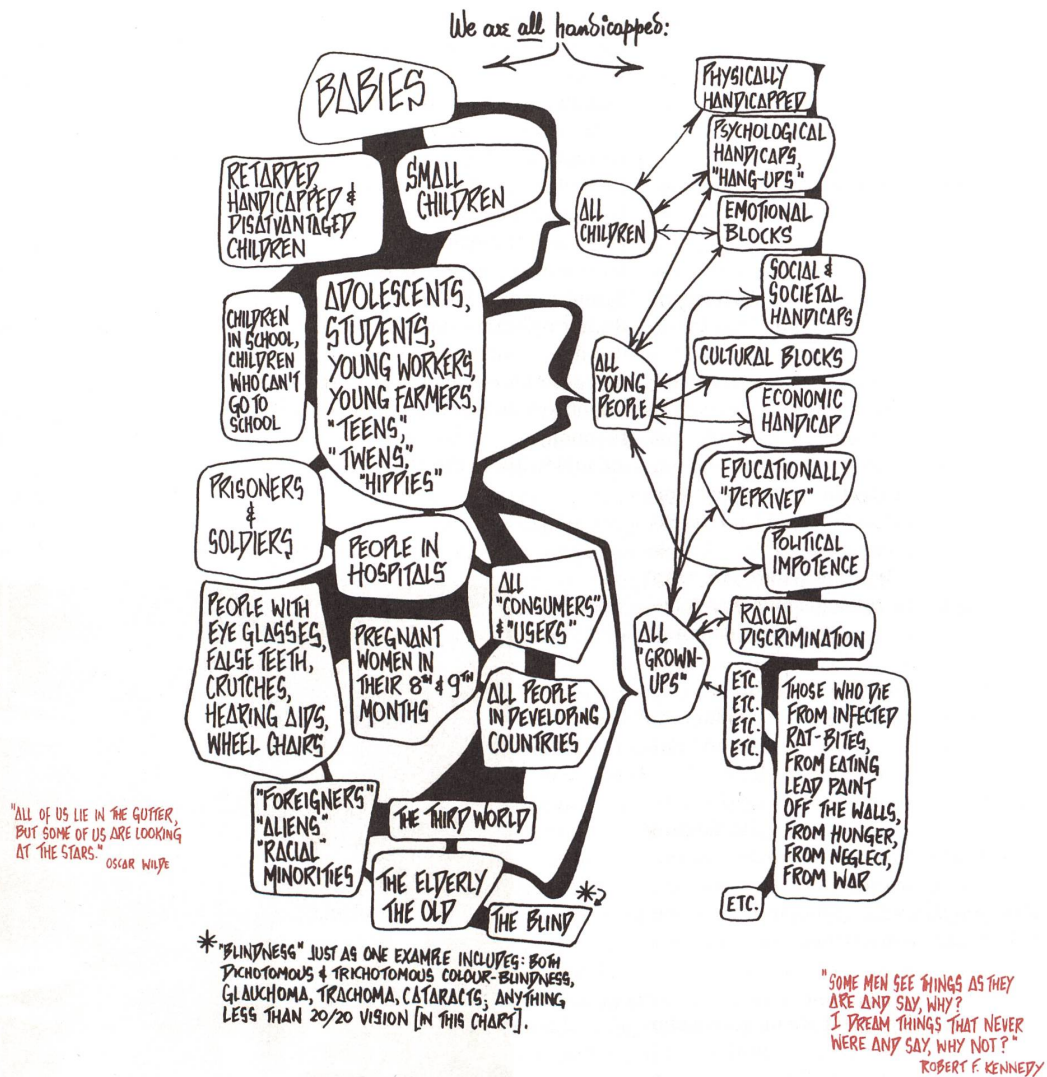 We are all handicapped:
BABIES
RETARDED,
HANDICAPPED &
DISATVANTAGED
CHILDREN
SMALL
CHILDREN
CHILDREN
IN SCHOOL,
CHILDREN
WHO CAN'T
GO TO
SCHOOL
ADOLESCENTS,
STUDENTS,
YOUNG WORKERS,
YOUNG FARMERS,
"TEENS,"
"TWENS,"
"HIPPIES"
PRISONERS
&
SOLDIERS
PEOPLE IN
HOSPITALS
PEOPLE WITH
EYE GLASSES,
FALSE TEETH,
CRUTCHES,
HEARING AIDS,
WHEEL CHAIRS
PREGNANT
WOMEN IN
THEIR 8TH & 9TH
MONTHS
ALL
"CONSUMERS"
& "USERS"
ALL PEOPLE
IN DEVELOPING
COUNTRIES
"FOREIGNERS"
"ALIENS"
"RACIAL"
MINORITIES
THE THIRD WORLD
THE ELDERLY
THE OLD
THE BLIND *
ALL
CHILDREN
ALL
YOUNG
PEOPLE
ALL
"GROWN-
UPS"
PHYSICALLY
HANDICAPPED
PSYCHOLOGICAL
HANDICAPS,
"HANG-UPS"
EMOTIONAL
BLOCKS
SOCIAL &
SOCIETAL
HANDICAPS
CULTURAL BLOCKS
ECONOMIC
HANDICAP
EDUCATIONALLY
"DEPRIVED"
POLITICAL
IMPOTENCE
RACIAL
DISCRIMINATION
ETC.
ETC.
ETC.
ETC.
THOSE WHO DIE
FROM INFECTED
RAT-BITES,
FROM EATING
LEAD PAINT
OFF THE WALLS,
FROM HUNGER,
FROM NEGLECT,
FROM WAR
ETC.
"ALL OF US LIE IN THE GUTTER,
BUT SOME OF US ARE LOOKING
AT THE STARS."
OSCAR WILDE
* "BLINDNESS" JUST AS ONE EXAMPLE INCLUDES: BOTH
DICHOTOMOUS & TRICHOTOMOUS COLOUR-BLINDNESS,
GLAUCHOMA, TRACHOMA, CATARACTS; ANYTHING
LESS THAN 20/20 VISION [IN THIS CHART].
"SOME MEN SEE THINGS AS THEY
ARE AND SAY, WHY?
I DREAM THINGS THAT NEVER
WERE AND SAY, WHY NOT?"
ROBERT F. KENNEDY